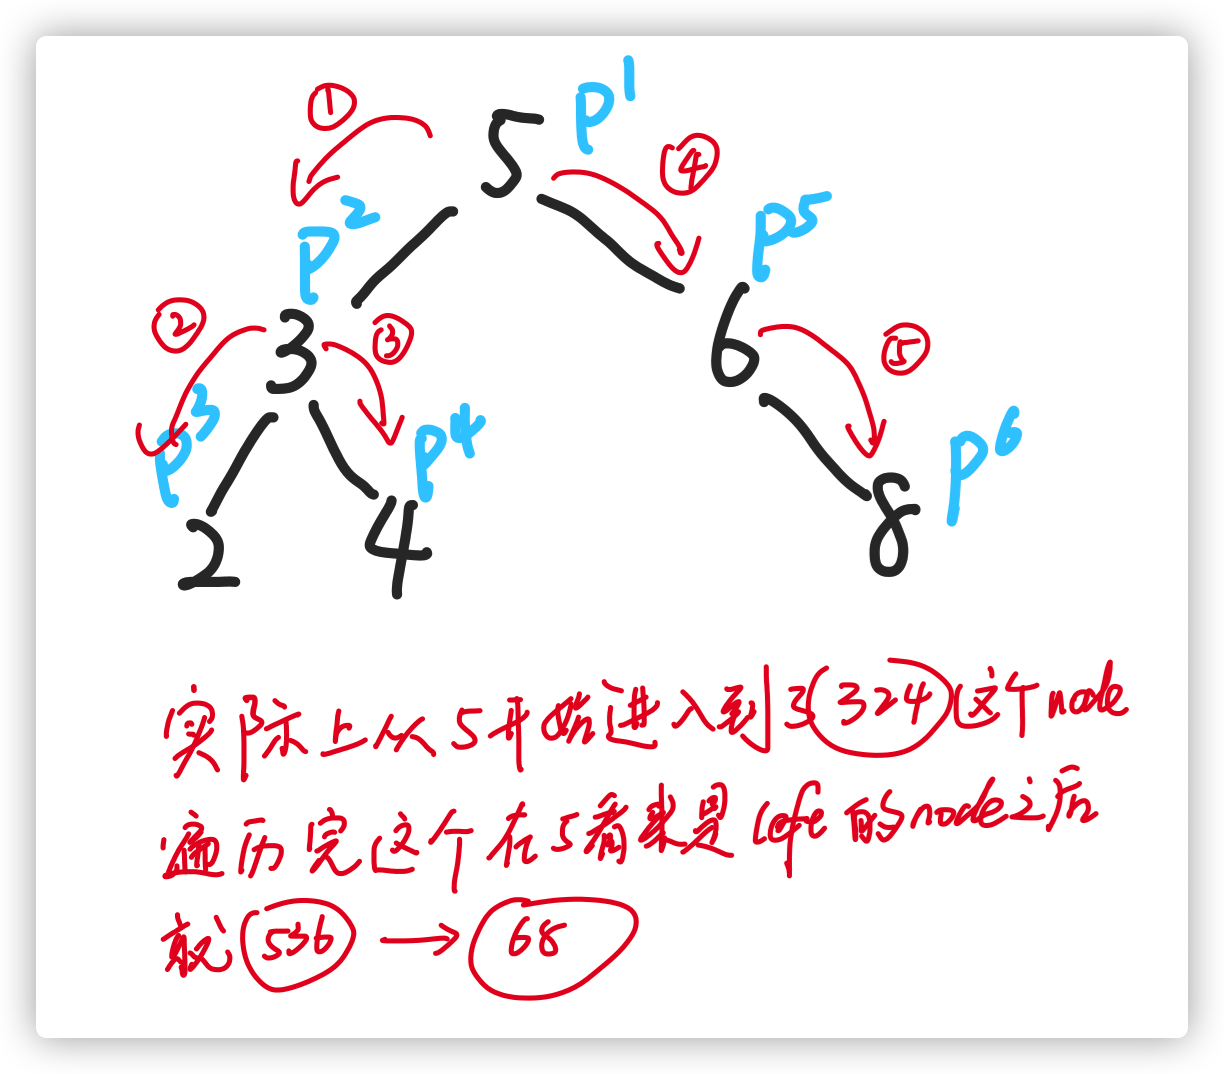 ① 5 p1 ④
p2 p5
② 3 ③ 6 ⑤
p3 p4 p6
2 4 8
实际上从5开始进入到3(324)这个node
遍历完这个在5看来是left的node之后
就 536 → 68